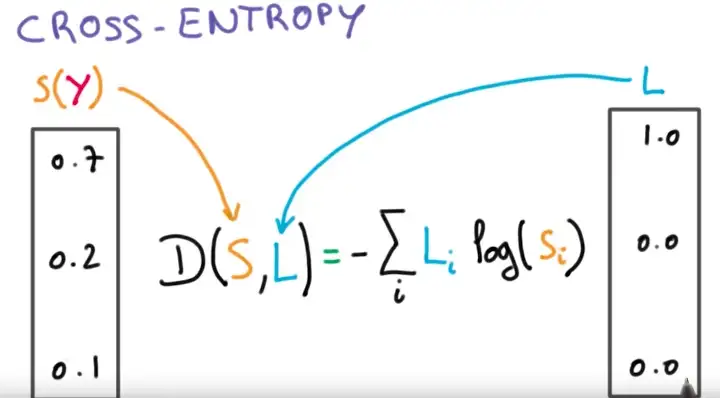 CROSS-ENTROPY
S(Y)
L
0.7
1.0
0.2
D(S,L)=-∑ᵢ Lᵢ log(Sᵢ)
0.0
0.1
0.0